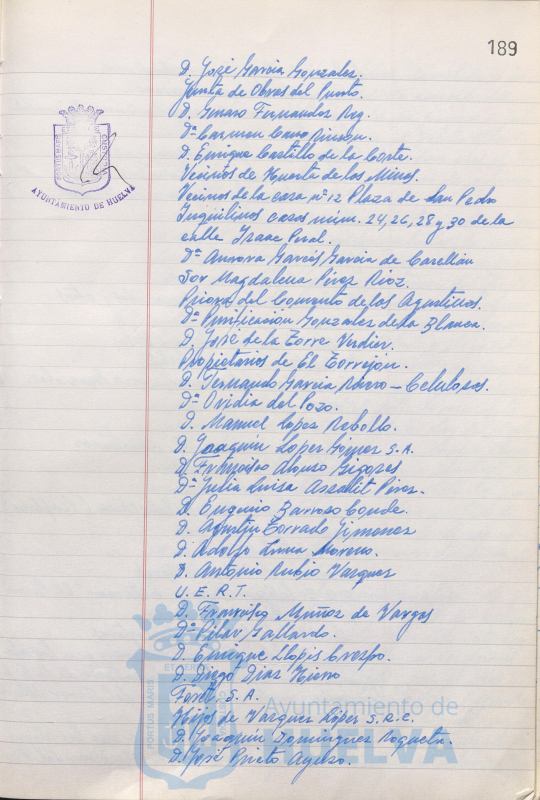 189
D. José García Gonzalez.
Junta de Obras del Puerto.
D. Genaro Fernandez Rey.
Dª Carmen Cano Rincon.
D. Enrique Castillo de la Corte.
Vecinos de Huerta de los Minos.
Vecinos de la casa nº 12 Plaza de San Pedro
Inquilinos casas núm. 24, 26, 28 y 30 de la
calle Isaac Peral.
Dª Aurora Garcés García de
Sor Magdalena Pérez Rioz.
Priora del Convento de las Agustinas.
Dª Purificación Gonzalez de la Blanca.
D. José de la Torre Verdier.
Propietarios de El Torrejón.
D. Fernando García - Celulosas.
Dª Ovidia del Pozo.
D. Manuel López Rebollo.
D. Joaquín López Gómez S.A.
D. Francisco Alonso Gigores
Dª Julia Luisa Perez.
D. Eugenio Barroso Conde.
D. Agustín Torrado Jimenez
D. Adolfo Luna Moreno.
D. Antonio Rubio Vazquez
U. E. R. T.
D. Francisco Muñoz de Vargas
Dª Pilar Gallardo.
D. Enrique Llopis Crespo.
D. Diego Diaz Hierro
Foret S.A.
Hijos de Vazquez López S.R.C.
D. Joaquín Dominguez Roqueta.
D. José Prieto Ayuso.
PORTUS MARIS
ET TERRAE CUSTODIA
AYUNTAMIENTO DE HUELVA
PORTUS MARIS
Ayuntamiento de
HUELVA